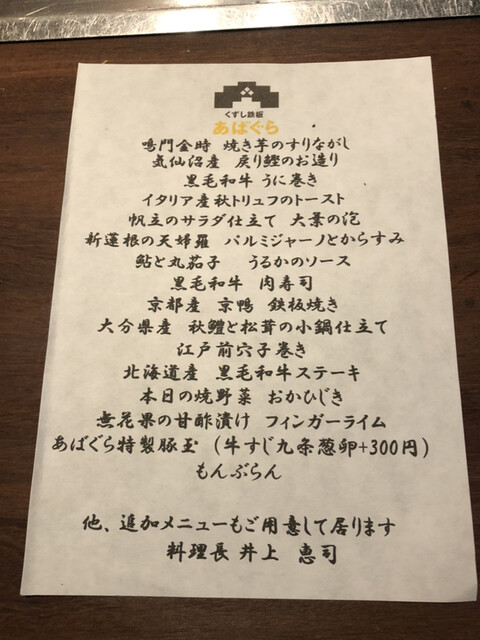 くずし鉄板
あばぐら
鳴門金時 焼き芋のすりながし
気仙沼産 戻り鰹のお造り
黒毛和牛 うに巻き
イタリア産秋トリュフのトースト
帆立のサラダ仕立て 大葉の泡
新蓮根の天婦羅 パルミジャーノとからすみ
鮎と丸茄子 うるかのソース
黒毛和牛 肉寿司
京都産 京鴨 鉄板焼き
大分県産 秋鱧と松茸の小鍋仕立て
江戸前穴子巻き
北海道産 黒毛和牛ステーキ
本日の焼野菜 おかひじき
無花果の甘酢漬け フィンガーライム
あばぐら特製豚玉 (牛すじ九条葱卵+300円)
もんぶらん
他、追加メニューもご用意して居ります
料理長 井上 恵司